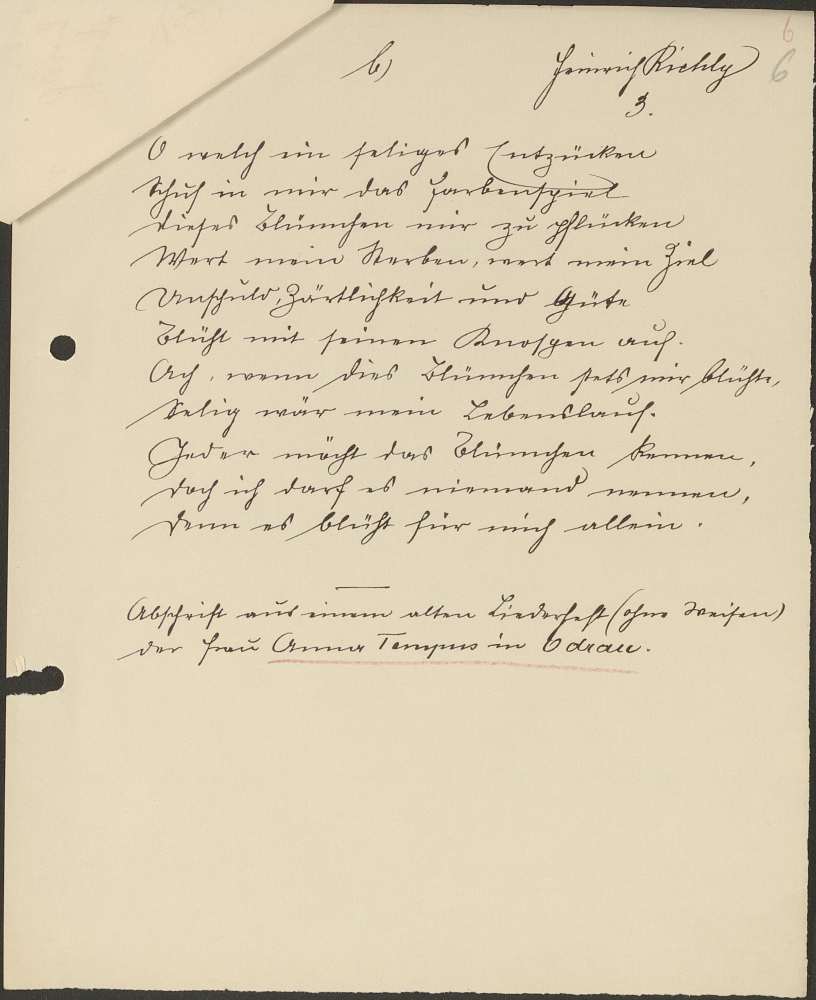 6
6
b)
Heinrich Richly
3.
O welch ein seliges Entzücken
Schuf in mir das Farbenspiel
Dieses Blümchen mir zu pflücken
Wert mein Sterben, wert mein Ziel
Unschuld, Zärtlichkeit und Güte
Blüht mit seinen Knospen auf.
Ach, wenn dies Blümchen stets mir blühte,
Selig wär mein Lebenslauf.
Jeder möcht das Blümchen kennen,
Doch ich darf es niemand nennen,
Denn es blüht für mich allein.
Abschrift aus einem alten Liederheft (ohne Weisen)
der Frau Anna Tempus in Odrau.